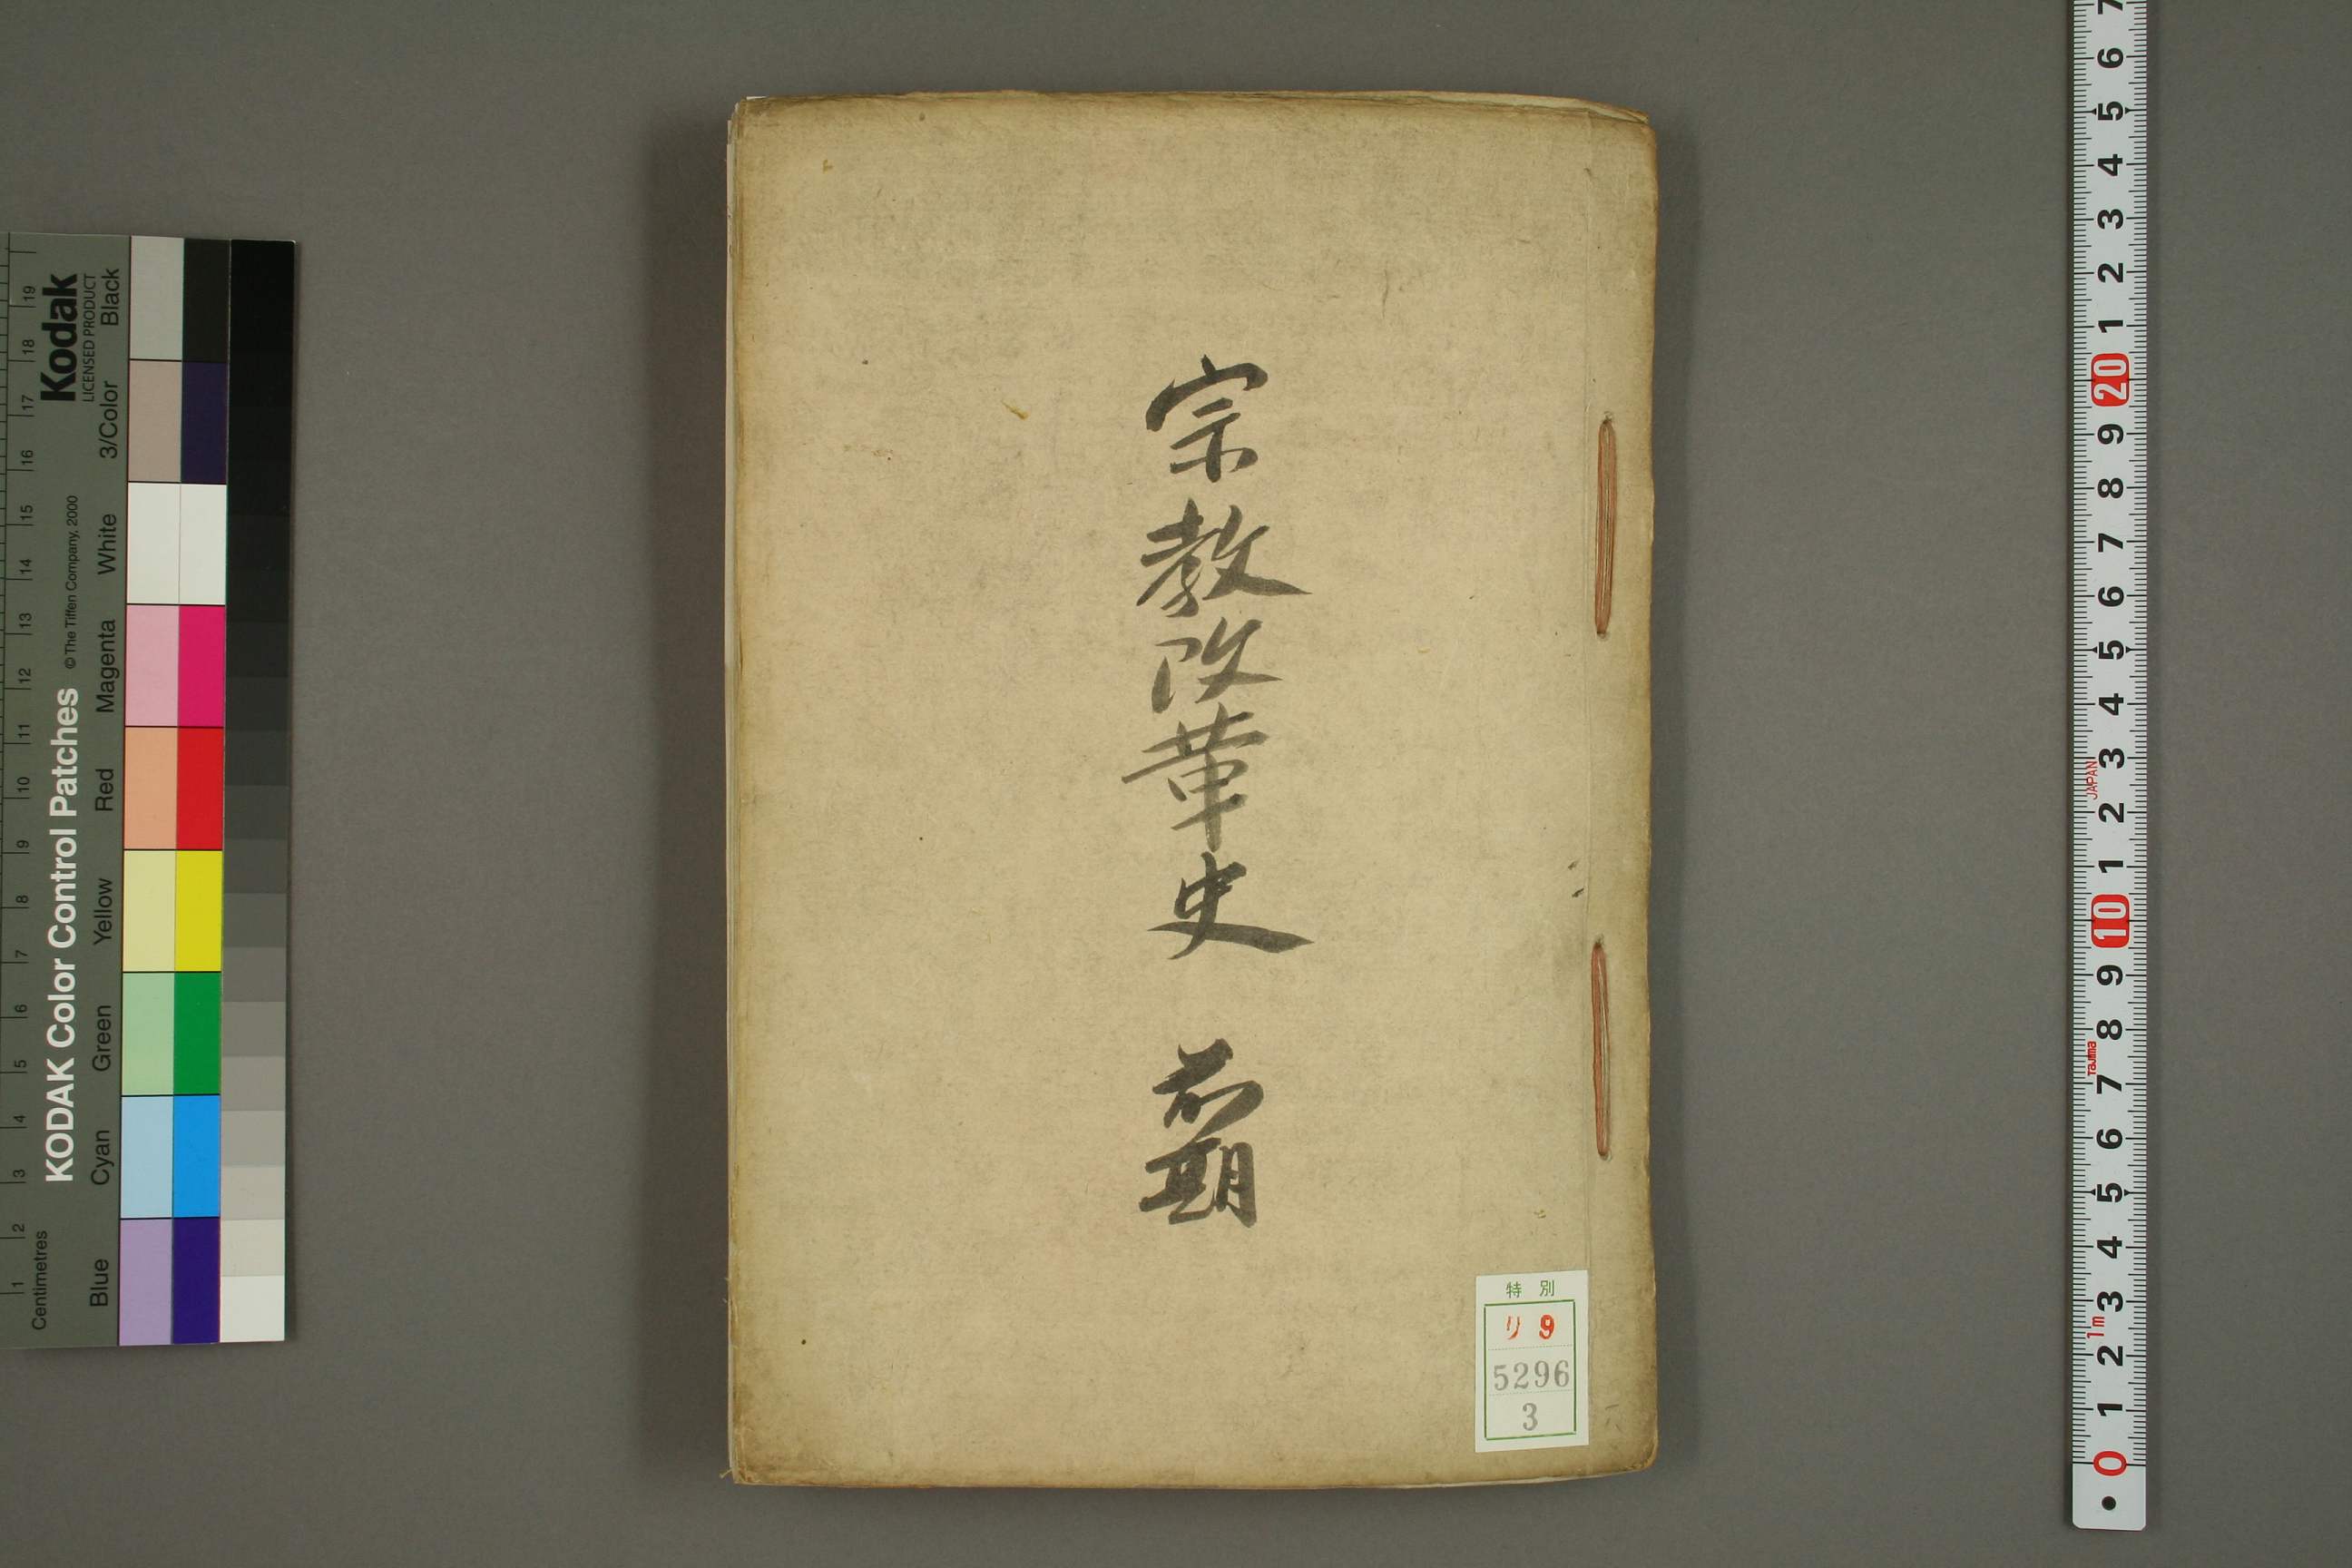 宗教改革史 前期
特別
リ9
5296
3
Kodak
LICENSED PRODUCT
KODAK Color Control Patches
© The Tiffen Company, 2000
Centimetres
Blue Cyan Green Yellow Red Magenta White 3/Color Black
1 2 3 4 5 6 7 8 9 10 11 12 13 14 15 16 17 18 19
7
6
5
4
3
2
1
20
9
8
7
6
5
4
3
2
1
10
9
8
7
6
5
4
3
2
1
0
JAPAN
Tajima
1m